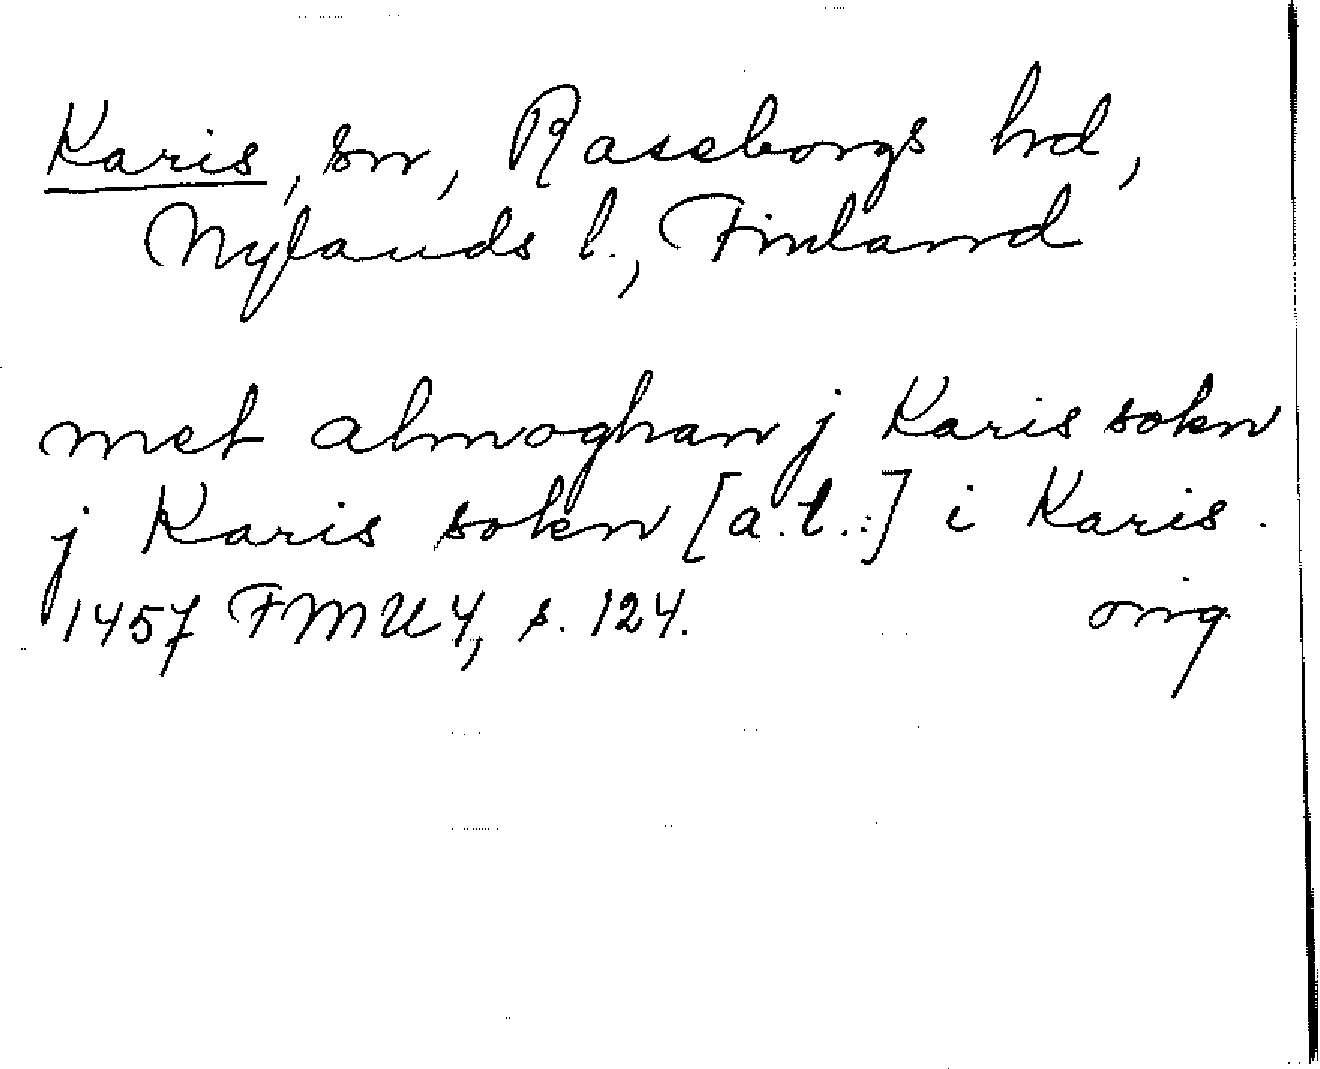 Karis, sn, Raseborgs hd,
Nylands l., Finland
met almoghan j Karis sokn
j Karis sokn [a.t..:] i Karis.
1457 FMU 4, s. 124. orig